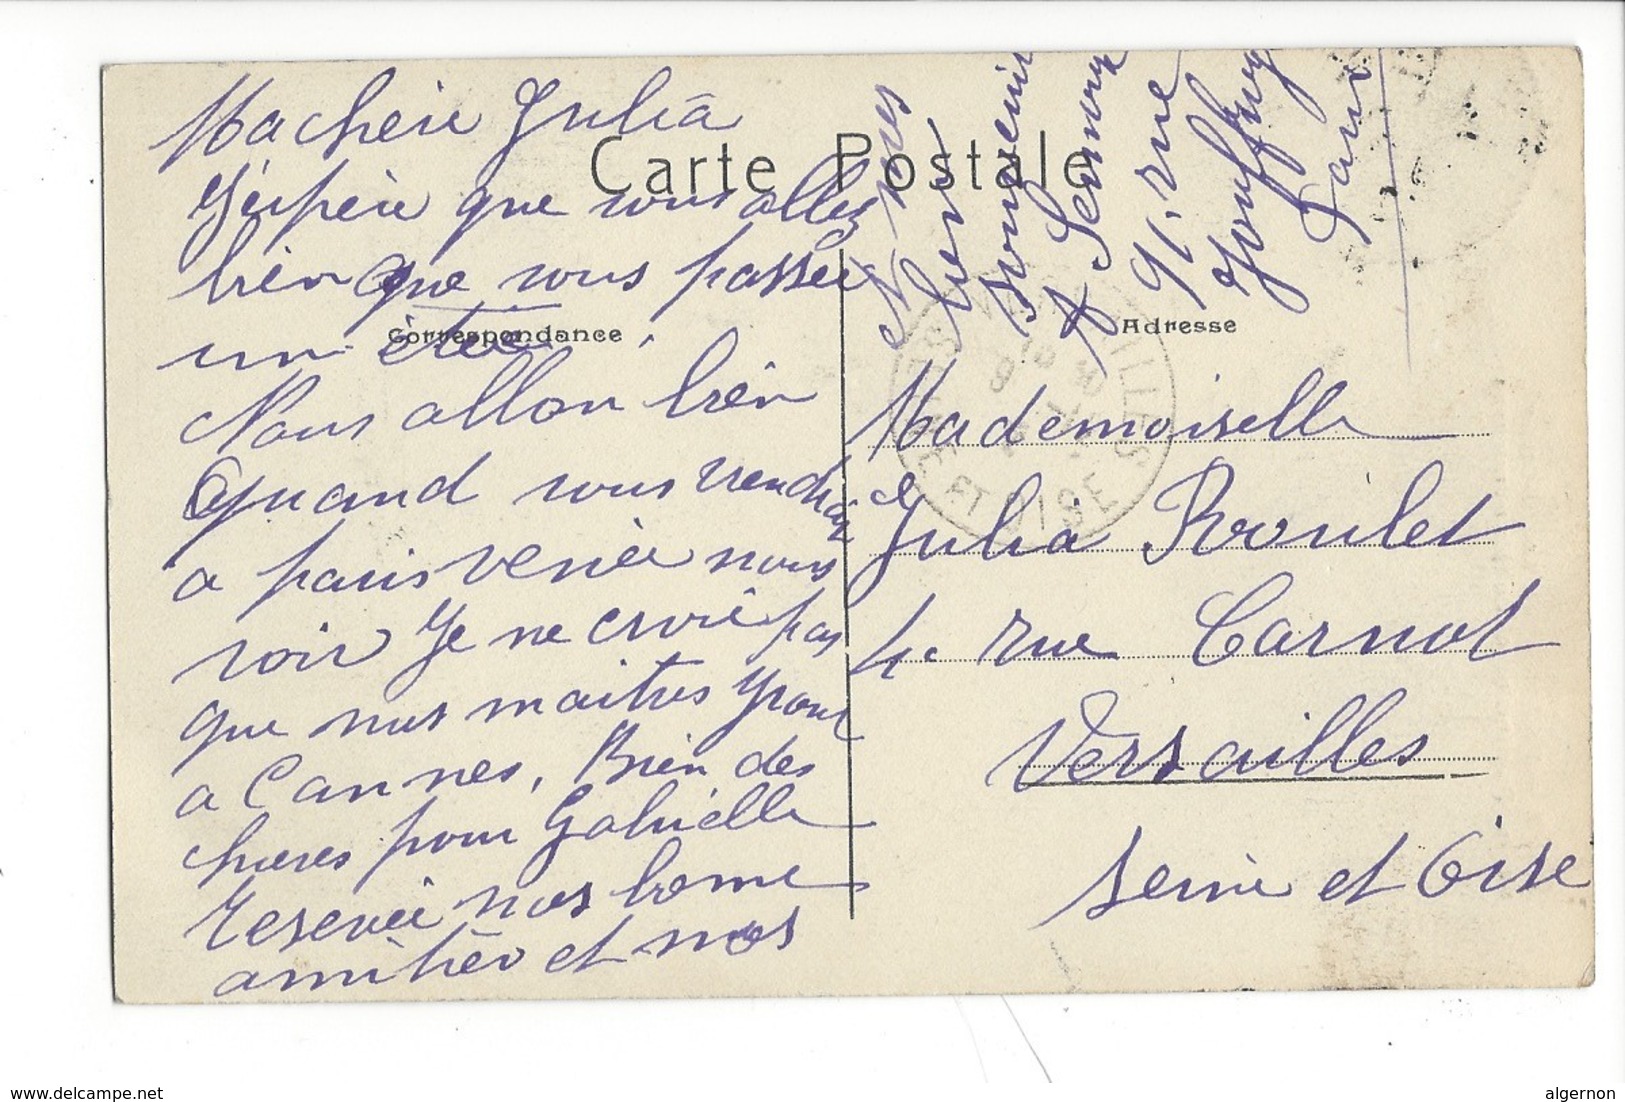 Carte Postale
Correspondance
Ma cherie Julia
J'espere que vous allez
bien que vous passée
un été
Nous allon bien
Quand vous viendrez
a paris venée nous
voir Je ne croie pas
que nos maitres iront
a Cannes, Bien des
choses pour Gabrielle
recevée nos bonne
amitiés et nos
souvenir
91. rue
Jouffroy
Paris
Adresse
Mademoiselle
Julia Roulet
4 rue Carnot
Versailles
Seine et Oise
VERSAILLES
SEINE ET OISE
delcampe.net
algernon